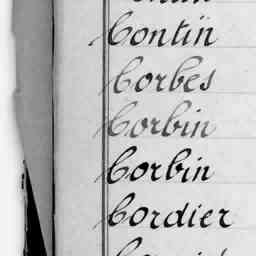 Contin
Corbes
Corbin
Corbin
Cordier